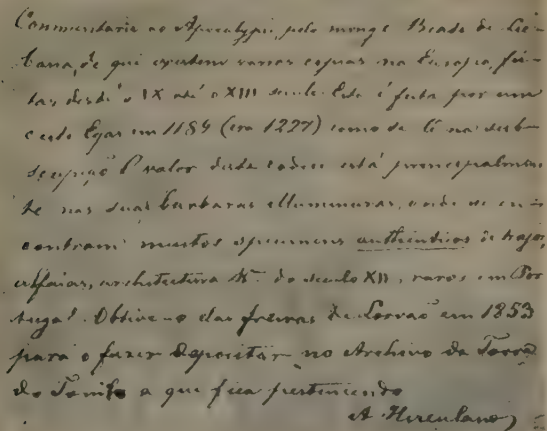 Commentario ao Apocalypse, pelo monge Beato de Lie-
bana, de que existem varias copias na Europa, fei-
tas desde o IX até o XIII seculo. Esta é feita por um
certo Egas em 1189 (era 1227) como se lê na subs-
cripção O valor deste codice está principalmen-
te nas suas barbaras illuminuras, onde se en-
contram muitos specimens authenticos de trajos,
alfaias, architectura &ª. do seculo XII, raros em Por-
tugal. Obtive-o das freiras de Lorvão em 1853
para o fazer depositar no Archivo da Torre
do Tombo a que fica pertencendo
A. Herculano